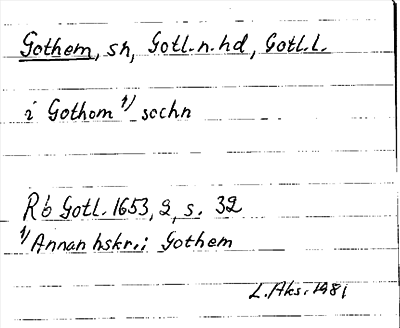 Gothem, sn, Gotl.n.hd, Gotl.L.
i Gothom 1/ sochn
Rb Gotl. 1653, 2, s. 32
1/ Annan hskr.: Gothem
L. Aks. 1981